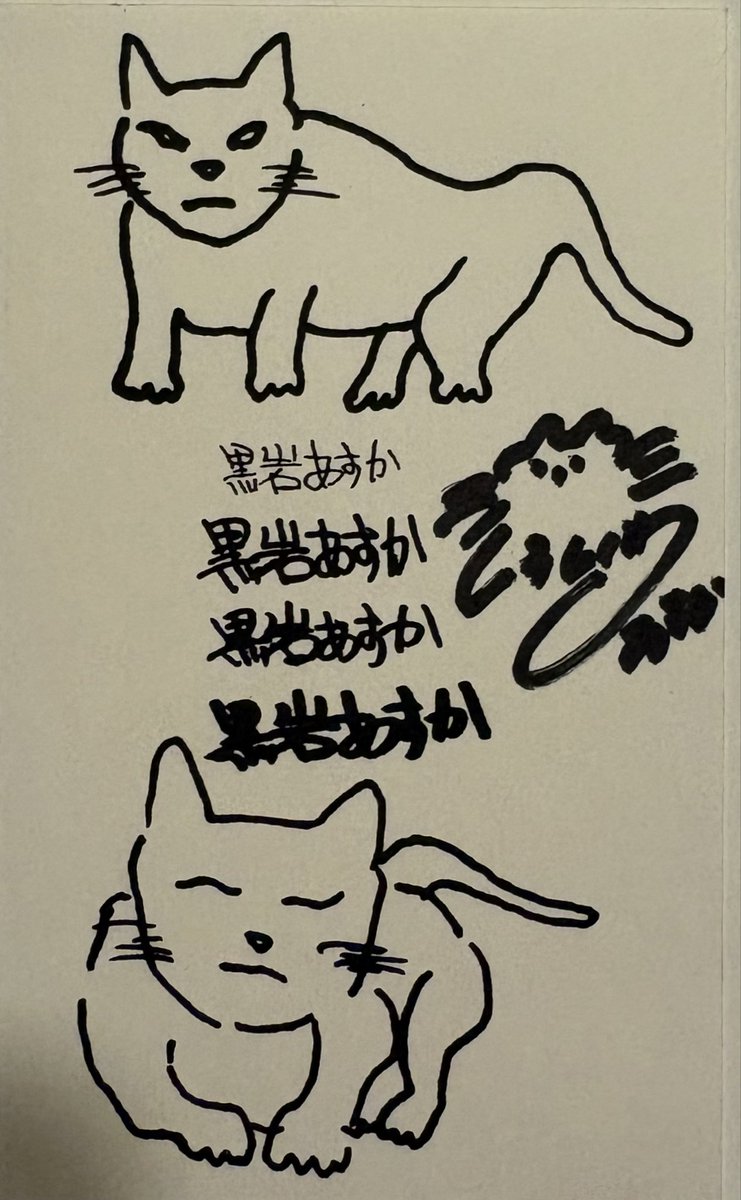 黒岩あすか
黒岩あすか
黒岩あすか
黒岩あすか